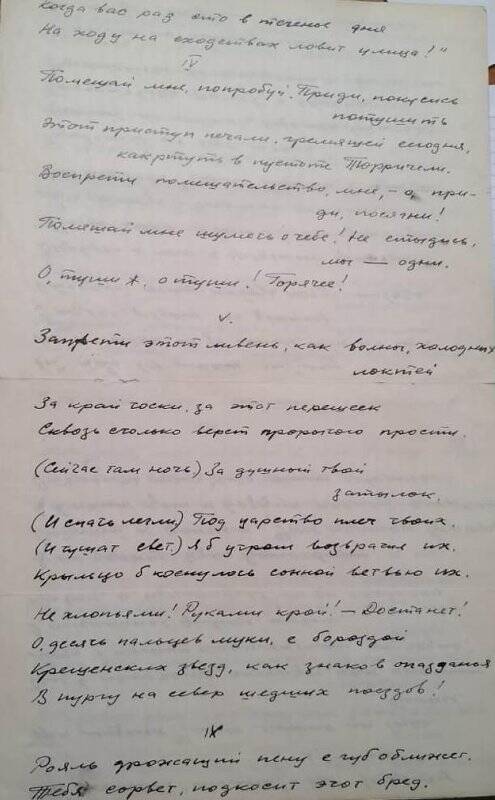 Когда вас раз сто в теченье дня
На ходу на сходствах ловит улица!"
IV
Помешай мне, попробуй. Приди, покусись
потушить
Этот приступ печали, гремящей сегодня,
как ртуть в пустоте Торричели.
Воспрети помешательство, мне, – о, при-
ди, посягни!
Помешай мне шуметь о тебе! Не стыдись,
мы — одни.
О, туши ж, о туши! Горячее!
V.
Запрети этот ливень, как волны, холодных
локтей
За край тоски, за этот перешеек
Сквозь столько верст прорытого прости.
(Сейчас там ночь) За душный твой
затылок.
(И спать легли) Под царство плеч твоих.
(И тушат свет.) Я б утром возвратил их.
Крыльцо б коснулось сонной ветвью их.
Не хлопьями! Руками крой! – Достанет!
О, десять пальцев муки, с бороздой
Крещенских звезд, как знаков опозданья
В пургу на север шедших поездов!
IX
Рояль дрожащий пену с губ оближет.
Тебя сорвет, подкосит этот бред.